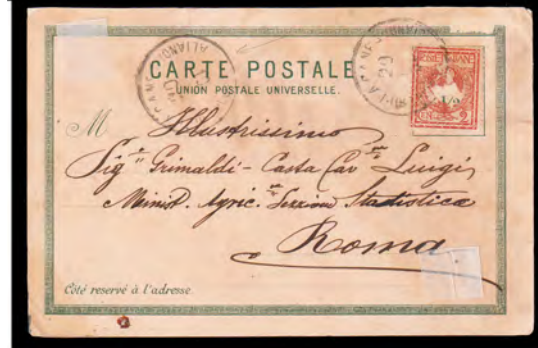 CARTE POSTALE
UNION POSTALE UNIVERSELLE.
M Illustrissimo
Sig.r Grimaldi - Casta Cav.re Luigi
Minist. Agric. Sezione Statistica
Roma
Côté reservé à l'adresse.